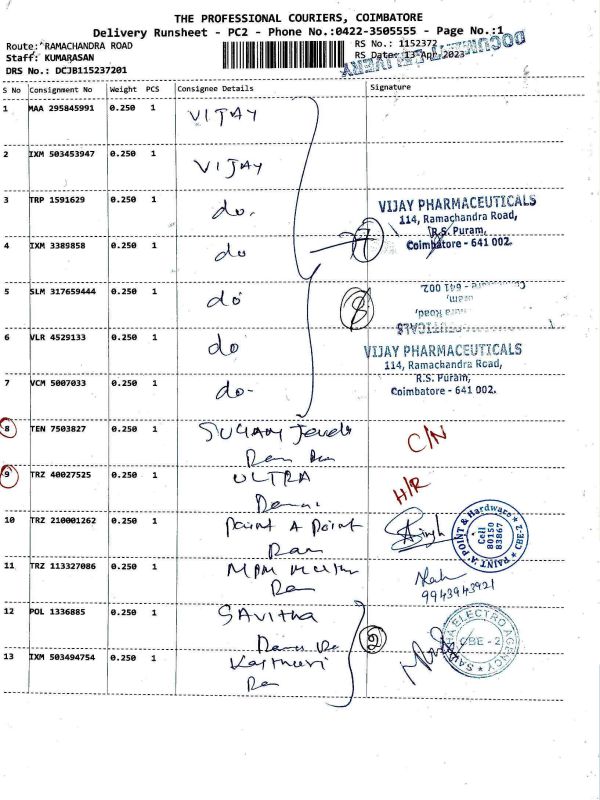 THE PROFESSIONAL COURIERS, COIMBATORE
Delivery Runsheet - PC2 - Phone No.:0422-3505555 - Page No.:1
Route: RAMACHANDRA ROAD
RS No.: 1152372
Staff: KUMARASAN
RS Date: 13-Apr-2023
DRS No.: DCJB115237201
DOCUMENT DELIVERY
S No Consignment No Weight PCS Consignee Details Signature
1 MAA 295845991 0.250 1 VIJAY
2 IXM 503453947 0.250 1 VIJAY
3 TRP 1591629 0.250 1 do.
VIJAY PHARMACEUTICALS
114, Ramachandra Road,
R.S. Puram,
Coimbatore - 641 002.
4 IXM 3389858 0.250 1 do
7
5 SLM 317659444 0.250 1 do
8
6 VLR 4529133 0.250 1 do
VIJAY PHARMACEUTICALS
114, Ramachandra Road,
R.S. Puram,
Coimbatore - 641 002.
7 VCM 5007033 0.250 1 do-
8 TEN 7503827 0.250 1 C/N
9 TRZ 40027525 0.250 1 ULTRA
H/R
10 TRZ 210001262 0.250 1 Point A Point
Ram
Singh
PAINT 'A' POINT & Hardware CBE-2
Cell
80150
83867
11 TRZ 113327086 0.250 1 MPM
9943943921
12 POL 1336885 0.250 1 SAVITHA
2
SAVITHA ELECTRO AGENCY
CBE - 2
13 IXM 503494754 0.250 1 Kasthuri